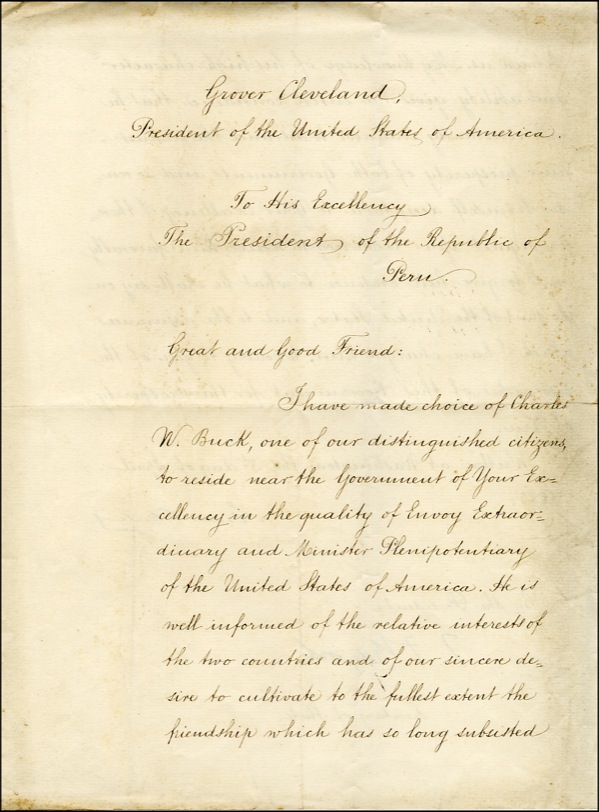 Grover Cleveland,
President of the United States of America.
To His Excellency
The President of the Republic of
Peru.
Great and Good Friend:
I have made choice of Charles
W. Buck, one of our distinguished citizens,
to reside near the Government of Your Ex-
cellency in the quality of Envoy Extraor-
dinary and Minister Plenipotentiary
of the United States of America. He is
well informed of the relative interests of
the two countries and of our sincere de-
sire to cultivate to the fullest extent the
friendship which has so long subsisted